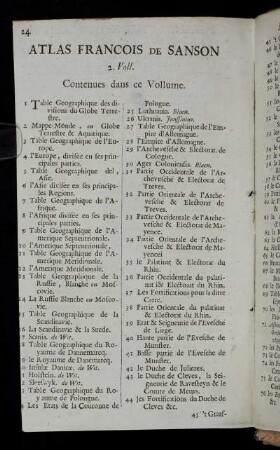 24
ATLAS FRANCOIS DE SANSON
2. Voll.
Contenues dans ce Vollume.
1 Table Geographique des di-
visions du Globe Terre-
stre.
2 Mappe-Monde, ou Globe
Terrestre & Aquatique.
Table Geographique de l'Eu-
rope.
4 l'Europe, divisée en ses prin-
cipales parties.
Table Geographique de
6 l'Asie divisée en ses principa-
les Regions.
Table Geographique de l'A-
frique.
8 l'Afrique divisée en ses prin-
cipales parties.
9 Table Geographique de l'A-
merique Septentrionnelle.
10 l'Amerique Septentrionnelle.
11 Table Geographique de l'A-
merique Meridionale.
12 l'Amerique Meridionale.
13 Table Geographique de la
Russie, Blanche ou Mosco-
vie.
14 La Russie Blanche ou Mosco-
vie.
15 Table Geographique de la
Scandinavie.
16 La Scandinavie & la Suede.
17 Scania. de Wit.
Table Geographique du Ro-
yaume de Dannemarcq.
le Royaume de Danemarcq.
Insulæ Danicæ. de Wit.
Holstein. de Wit.
Sleeswyk. de Wit.
Table Geographique du Ro-
yaume de Pologne.
Les Etats de la Couronne de
Pologne.
25 Lithuania. Bleau.
26 Ukrania. Janssonius.
27 Table Geographique de l'Em-
pire d'Allemagne.
28 l'Empire d'Allemagne.
29 l'Archevesché & Electorat de
Cologne.
30 Ager Coloniensis. Bleau.
31 Partie Occidentale de l'Ar-
chevesché & Electorat de
Treves.
32 Partie Orientale de l'Arche-
vesché & Electorat de
Treves.
33 Partie Occidentale de l'Ar-
chevesché & Electorat de Ma-
yence.
34 Partie Orientale de l'Arche-
vesché & Electorat de Ma-
yence.
35 le Palatinat & Electorat du
Rhin.
36 Partie Occidentale du palati-
nat & Electorat du Rhin.
37 Les Fortifications pour la ditte
Carte.
38 Partie Orientale du palatinat
& Electorat du Rhin.
39 Etat & Seigneurie de l'Evesché
de Liege.
40 Haute partie de l'Evesché de
Munster.
41 Basse partie de l'Evesché de
Munster.
42 le Duché de Julieres.
43 le Duché de Cleves, la Sei-
gneurie de Ravesteyn & le
Comté de Meurs.
44 les Fortifications du Duché de
Cleves &c.
45 't Graaf-